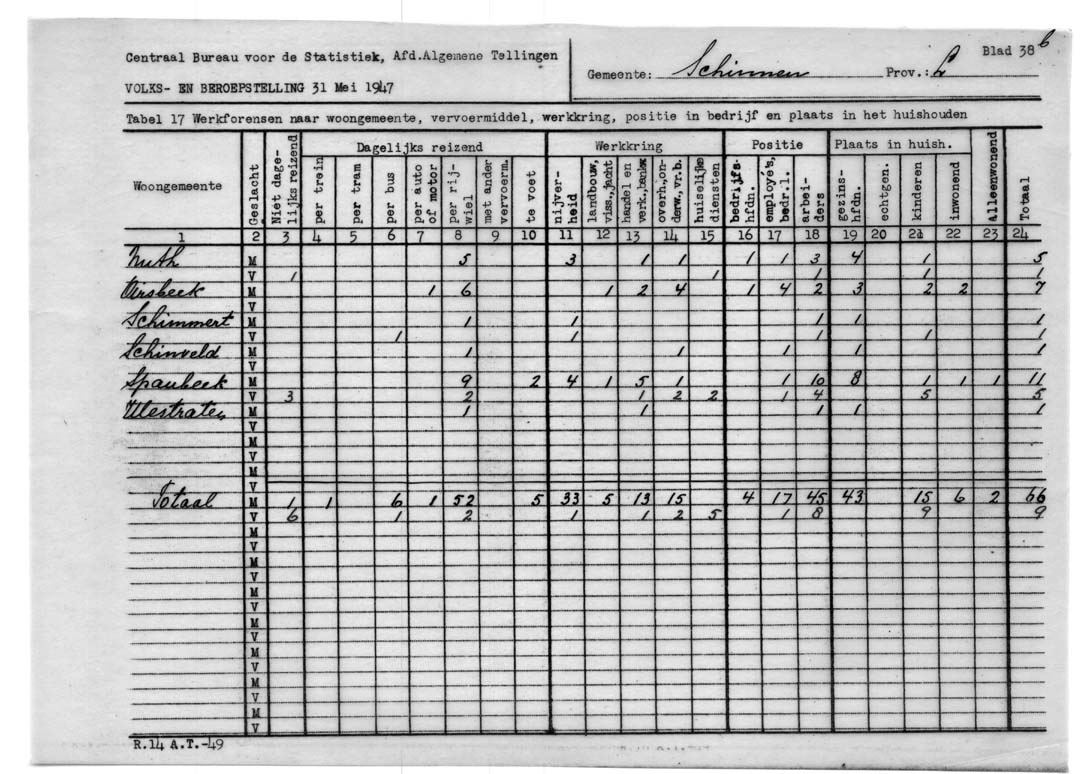 Centraal Bureau voor de Statistiek, Afd.Algemene Tellingen
VOLKS- EN BEROEPSTELLING 31 Mei 1947
Gemeente: Schinnen Prov.: L
Blad 38 b
Tabel 17 Werkforensen naar woongemeente, vervoermiddel, werkkring, positie in bedrijf en plaats in het huishouden
Woongemeente Geslacht Niet dage-lijks reizend Dagelijks reizend Werkkring Positie Plaats in huish. Alleenwonend Totaal
per trein per tram per bus per auto of motor per rij-wiel met ander vervoerm. te voet nijver-heid landbouw, viss., jacht handel en verk., bankw. overh., on-derw., vr.b. huiselijke diensten bedrijfs-hfdn. employé's, bedr.l. arbei-ders gezins-hfdn. echtgen. kinderen inwonend
1 2 3 4 5 6 7 8 9 10 11 12 13 14 15 16 17 18 19 20 21 22 23 24
Nuth M 5 3 1 1 1 1 3 4 1 5
V 1 1 1 1 1
Oirsbeek M 1 6 1 2 4 1 4 2 3 2 2 7
V
Schimmert M 1 1 1 1 1
V 1 1 1 1 1
Schinveld M 1 1 1 1 1
V
Spaubeek M 9 2 4 1 5 1 1 10 8 1 1 1 11
V 3 2 1 2 2 1 4 5 5
Ulestraten M 1 1 1 1 1
V
M
V
M
V
Totaal M 1 1 6 1 52 5 33 5 13 15 4 17 45 43 15 6 2 66
V 6 1 2 1 1 2 5 1 8 9 9
M
V
M
V
M
V
M
V
M
V
M
V
M
V
R.14 A.T.-49